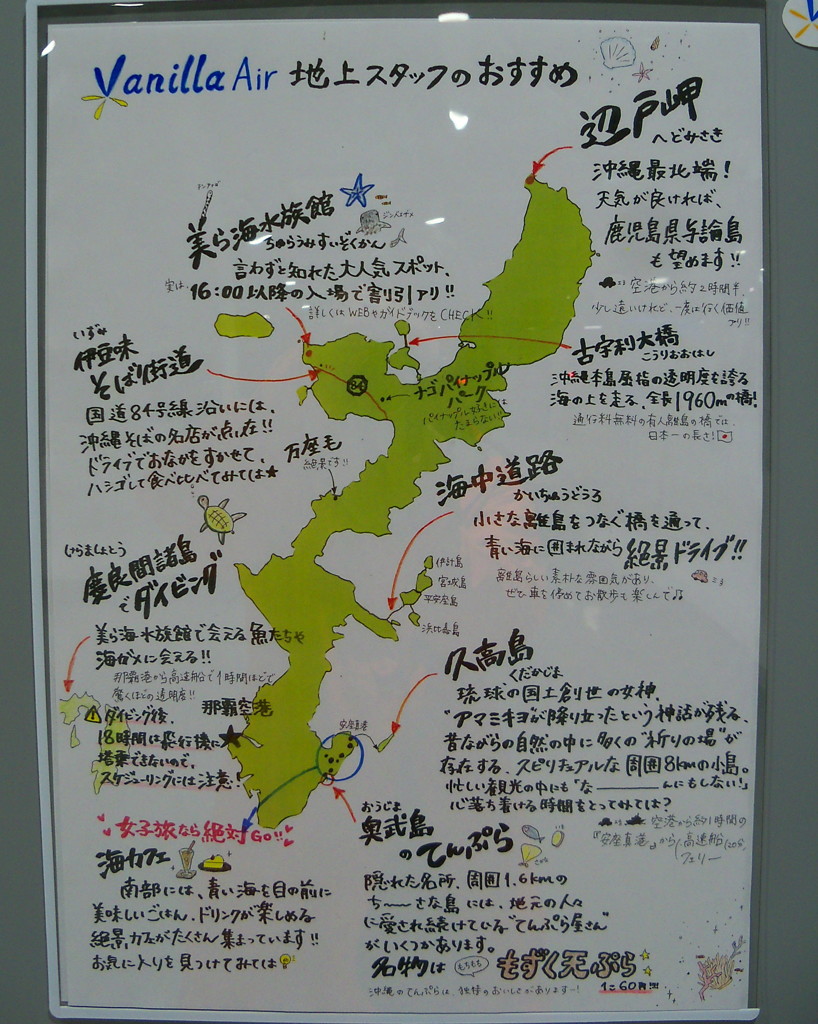 Vanilla Air 地上スタッフのおすすめ
辺戸岬
へどみさき
沖縄最北端!
天気が良ければ、
鹿児島県与論島
も望めます!!
空港から約2時間半、
少し遠いけれど、一度は行く価値
アリ!!
美ら海水族館
ちゅらうみすいぞくかん
ジンベエザメ
言わずと知れた大人気スポット、
実は、
16:00以降の入場で割引アリ!!
詳しくはWEBやガイドブックをCHECK!!
古宇利大橋
こうりおおはし
沖縄本島屈指の透明度を誇る
海の上を走る、全長1960mの橋!
通行料無料の有人離島の橋では、
日本一の長さ!
いずみ
伊豆味
そば街道
国道84号線沿いには、
沖縄そばの名店が点在!!
ドライブでおなかをすかせて、
ハシゴして食べ比べてみては★
84
ナゴパイナップル
パーク
パイナップル好きには
たまらない!!
万座毛
絶景です!!
海中道路
かいちゅうどうろ
小さな離島をつなぐ橋を通って、
青い海に囲まれながら絶景ドライブ!!
離島らしい素朴な雰囲気があり、
ぜひ車を停めてお散歩も楽しんで♫
伊計島
宮城島
平安座島
浜比嘉島
けらましょとう
慶良間諸島
でダイビング
美ら海水族館で会える魚たちや
海ガメに会える!!
那覇港から高速船で1時間ほどで
驚くほどの透明度!!
⚠ダイビング後、
18時間は飛行機に
搭乗できないので、
スケジューリングには注意!
那覇空港
安座真港
久高島
くだかじま
琉球の国土創世の女神、
"アマミキヨ"が降り立ったという神話が残る、
昔ながらの自然の中に多くの"祈りの場"が
存在する、スピリチュアルな周囲8kmの小島。
忙しい観光の中にも「な――――んにもしない!」
心落ち着ける時間をとってみては?
空港から約1時間の
『安座真港』から高速船
フェリー
女子旅なら絶対GO!!
海カフェ
南部には、青い海を目の前に
美味しいごはん、ドリンクが楽しめる
絶景カフェがたくさん集まっています!!
お気に入りを見つけてみては
おうじま
奥武島
のてんぷら
隠れた名所、周囲1.6kmの
ち――さな島には、地元の人々
に愛され続けている"てんぷら屋さん"
がいくつかあります。
名物は もちもち もずく天ぷら
1コ60円!!!
沖縄のてんぷらは、独特のおいしさがありますー!